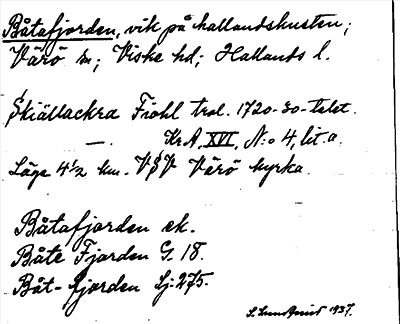 Båtafjorden, vik på hallandskusten;
Värö sn; Viske hd; Hallands l.
Skiällackra Fiohl trol. 1720-30-talet.
— KrA, XVI, N:o 4, lit. a.
Läge 4 1/2 km. VSV Värö kyrka.
Båtafjorden ek.
Båte Fjorden G. 18.
Båt-fjorden Lj. 275.
S. Lundqvist 1937.